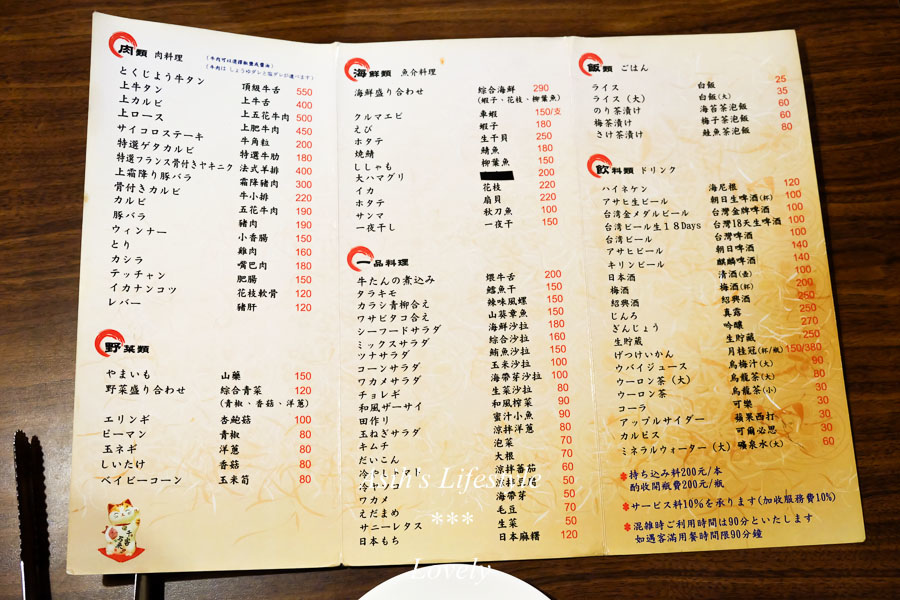 肉類 肉料理
(牛肉可以選擇鹽或醬油)
(牛肉は しょうゆダレと塩ダレが選べます)
とくじょう牛タン 頂級牛舌 550
上牛タン 上牛舌 400
上カルビ 上五花牛肉 500
上ロース 上肥牛肉 450
サイコロステーキ 牛角粒 200
特選ゲタカルビ 特選牛肋 180
特選フランス骨付きヤキニク 法式羊排 400
上霜降り豚バラ 霜降豬肉 300
骨付きカルビ 牛小排 220
カルビ 五花牛肉 190
豚バラ 豬肉 190
ウィンナー 小香腸 150
とり 雞肉 160
カシラ 嘴巴肉 180
テッチャン 肥腸 150
イカナンコツ 花枝軟骨 120
レバー 豬肝 120
野菜類
やまいも 山藥 150
野菜盛り合わせ 綜合青菜 120
(青椒、香菇、洋蔥)
エリンギ 杏鮑菇 100
ピーマン 青椒 80
玉ネギ 洋蔥 80
しいたけ 香菇 80
ベイビーコーン 玉米筍 80
海鮮類 魚介料理
海鮮盛り合わせ 綜合海鮮 290
(蝦子、花枝、柳葉魚)
クルマエビ 車蝦 150/支
えび 蝦子 180
ホタテ 生干貝 250
焼鯖 鯖魚 180
ししゃも 柳葉魚 150
大ハマグリ 200
イカ 花枝 220
ホタテ 扇貝 220
サンマ 秋刀魚 100
一夜干し 一夜干 150
一品料理
牛たんの煮込み 煨牛舌 200
タラキモ 鱈魚干 150
カラシ青柳合え 辣味風螺 150
ワサビタコ合え 山葵章魚 150
シーフードサラダ 海鮮沙拉 180
ミックスサラダ 綜合沙拉 160
ツナサラダ 鮪魚沙拉 150
コーンサラダ 玉米沙拉 100
ワカメサラダ 海帶芽沙拉 100
チョレギ 生菜沙拉 90
和風ザーサイ 和風榨菜 90
田作り 蜜汁小魚 90
玉ねぎサラダ 涼拌洋蔥 80
キムチ 泡菜 70
だいこん 大根 70
冷やしトマト 涼拌蕃茄 60
冷ヤッコ 涼拌 50
ワカメ 海帶芽 50
えだまめ 毛豆 70
サニーレタス 生菜 50
日本もち 日本麻糬 120
飯類 ごはん
ライス 白飯 25
ライス(大) 白飯(大) 35
のり茶漬け 海苔茶泡飯 60
梅茶漬け 梅子茶泡飯 60
さけ茶漬け 鮭魚茶泡飯 80
飲料類 ドリンク
ハイネケン 海尼根 120
アサヒ生ビール 朝日生啤酒(杯) 100
台湾金メダルビール 台灣金牌啤酒 100
台湾ビール生18Days 台灣18天生啤酒 100
台湾ビール 台灣啤酒 100
アサヒビール 朝日啤酒 140
キリンビール 麒麟啤酒 140
日本酒 清酒(壺) 100
梅酒 梅酒(杯) 200
紹興酒 紹興酒 200
じんろ 真露 250
ぎんじょう 吟釀 270
生貯蔵 生貯藏 250
げつけいかん 月桂冠(杯/瓶) 150/380
ウバイジュース 烏梅汁(大) 90
ウーロン茶(大) 烏龍茶(大) 80
ウーロン茶 烏龍茶(小) 30
コーラ 可樂 30
アップルサイダー 蘋果西打 30
カルピス 可爾必思 30
ミネラルウォーター(大) 礦泉水(大) 60
持ち込み料200元/本
酌收開瓶費200元/瓶
サービス料10%を承ります(加收服務費10%)
混雑時ご利用時間は90分といたします
如遇客滿用餐時間限90分鐘
Lifestyle
***
Lovely